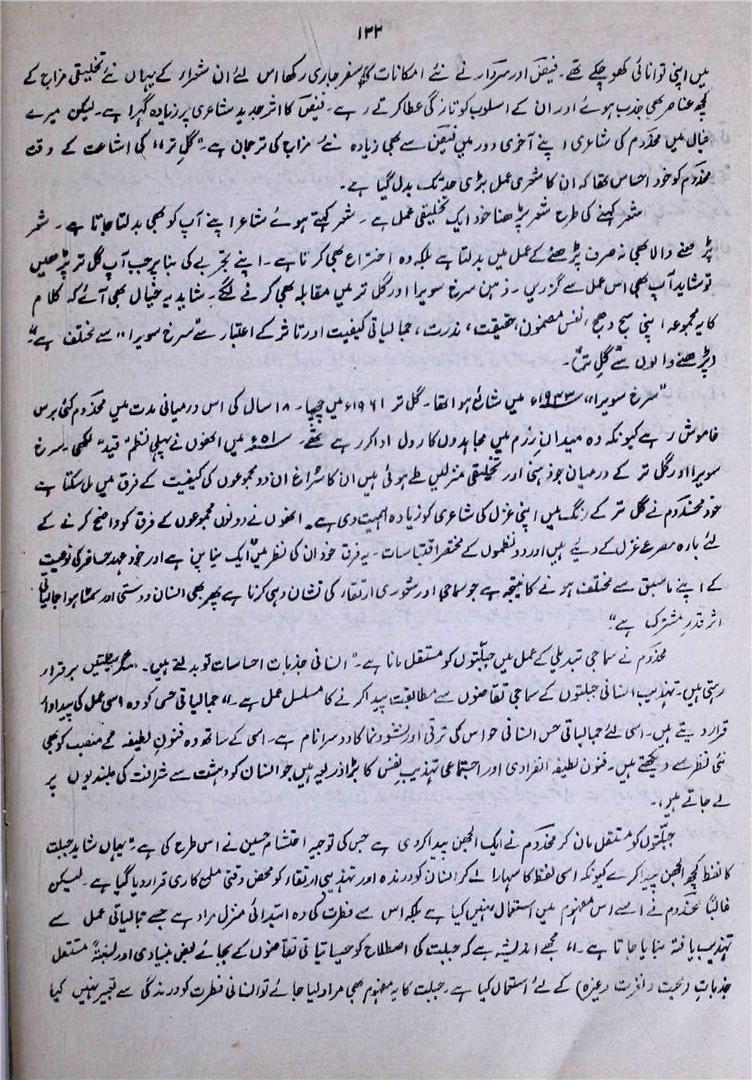 ۱۳۲
میں اپنی توانائی کھو چکے تھے۔ فیض اور سردار نے نئے امکانات کا سفر جاری رکھا اس لئے ان شعراء کے یہاں نئے تخلیقی مزاج کے
کچھ عناصر بھی جذب ہوئے اور ان کے اسلوب کو تازگی عطا کرتے رہے۔ فیض کا اثر جدید شاعری پر زیادہ گہرا ہے۔ لیکن میرے
خیال میں مخدوم کی شاعری اپنے آخری دور میں فیض سے بھی زیادہ نئے مزاج کی ترجمان ہے۔ "گلِ تر" کی اشاعت کے وقت
مخدوم کو خود احساس تھا کہ ان کا شعری عمل بڑی حد تک بدل گیا ہے۔
"شعر کہنے کی طرح شعر پڑھنا خود ایک تخلیقی عمل ہے۔ شعر کہتے ہوئے شاعر اپنے آپ کو بھی بدلتا جاتا ہے۔ شعر
پڑھنے والا بھی نہ صرف پڑھنے کے عمل میں بدلتا ہے بلکہ وہ اختراع بھی کرتا ہے۔ اپنے تجربے کی بنا پر جب آپ گل تر پڑھیں
تو شاید آپ بھی اس عمل سے گزریں۔ ذہن سرخ سویرا اور گل تر میں مقابلہ بھی کرنے لگے۔ شاید یہ خیال بھی آئے کہ کلام
کا یہ مجموعہ اپنی سج دھج، نفس مضمون، حقیقت، ندرت، جمالیاتی کیفیت اور تاثر کے اعتبار سے "سرخ سویرا" سے مختلف ہے"
(پڑھنے والوں سے گل تر)۔
"سرخ سویرا" میں شائع ہوا تھا۔ گل تر ۱۹۶۱ء میں چھپا۔ ۱۸ سال کی اس درمیانی مدت میں مخدوم کئی برس
خاموش رہے کیونکہ وہ میدان رزم میں مجاہدوں کا رول ادا کر رہے تھے۔ ۵۱ء میں انھوں نے پہلی نظم "قید" لکھی۔ سرخ
سویرا اور گل تر کے درمیان جو ذہنی اور تخلیقی منزلیں طے ہوئی ہیں ان کا سراغ ان دو مجموعوں کی کیفیت کے فرق میں مل سکتا ہے
خود مخدوم نے گل تر کے رنگ میں اپنی غزل کی شاعری کو زیادہ اہمیت دی ہے۔ انھوں نے دونوں مجموعوں کے فرق کو واضح کرنے کے
لئے بارہ مصرعے غزل کے دیے ہیں اور دو نظموں کے مختصر اقتباسات۔ یہ فرق خود ان کی نظر میں "ایک نیا پن ہے اور خود عہد حاضر کی نوعیت
کے اپنے ماسبق سے مختلف ہونے کا نتیجہ ہے جو سماجی اور شعوری ارتقاء کی نشان دہی کرتا ہے پھر بھی انسان دوستی اور سمٹا ہوا جمالیاتی
اثر قدرِ مشترک ہے"
مخدوم نے سماجی تبدیلی کے عمل میں جبلتوں کو مستقل مانا ہے۔ "انسانی جذبات احساسات تو بدلتے ہیں۔ مگر جبلتیں برقرار
رہتی ہیں۔ تہذیب انسانی جبلتوں کے سماجی تقاضوں سے مطابقت پیدا کرنے کا مسلسل عمل ہے۔" جمالیاتی حس کو وہ اسی عمل کی پیداوار
قرار دیتے ہیں۔ اسی لئے جمالیاتی حس انسانی حواس کی ترقی اور نشوونما کا دوسرا نام ہے۔ اسی کے ساتھ وہ فنون لطیفہ کے منصب کو بھی
نئی نظر سے دیکھتے ہیں۔ فنون لطیفہ انفرادی اور اجتماعی تہذیب نفس کا بڑا ذریعہ ہیں جو انسان کو وحشت سے شرافت کی بلندیوں پر
لے جاتے ہیں۔
جبلتوں کو مستقل مان کر مخدوم نے ایک الجھن پیدا کر دی ہے جس کی توجیہ احتشام حسین نے اس طرح کی ہے۔ "یہاں شاید جبلت
کا لفظ کچھ الجھن پیدا کرے کیونکہ اسی لفظ کا سہارا لے کر انسان کو درندہ اور تہذیبی ارتقاء کو محض وقتی ملمع کاری قرار دیا گیا ہے۔ لیکن
غالباً مخدوم نے اسے اس مفہوم میں استعمال نہیں کیا ہے بلکہ اس سے فطرت کی وہ ابتدائی منزل مراد ہے جسے جمالیاتی عمل سے
تہذیب یافتہ بنایا جاتا ہے۔" مجھے اندیشہ ہے کہ جبلت کی اصطلاح کو حیاتیاتی تقاضوں کے بجائے بعض بنیادی اور نسبتاً مستقل
جذبات (محبت و نفرت وغیرہ) کے لئے استعمال کیا ہے۔ جبلت کا یہ مفہوم بھی مراد لیا جائے تو انسانی فطرت کو درندگی سے تعبیر نہیں کیا